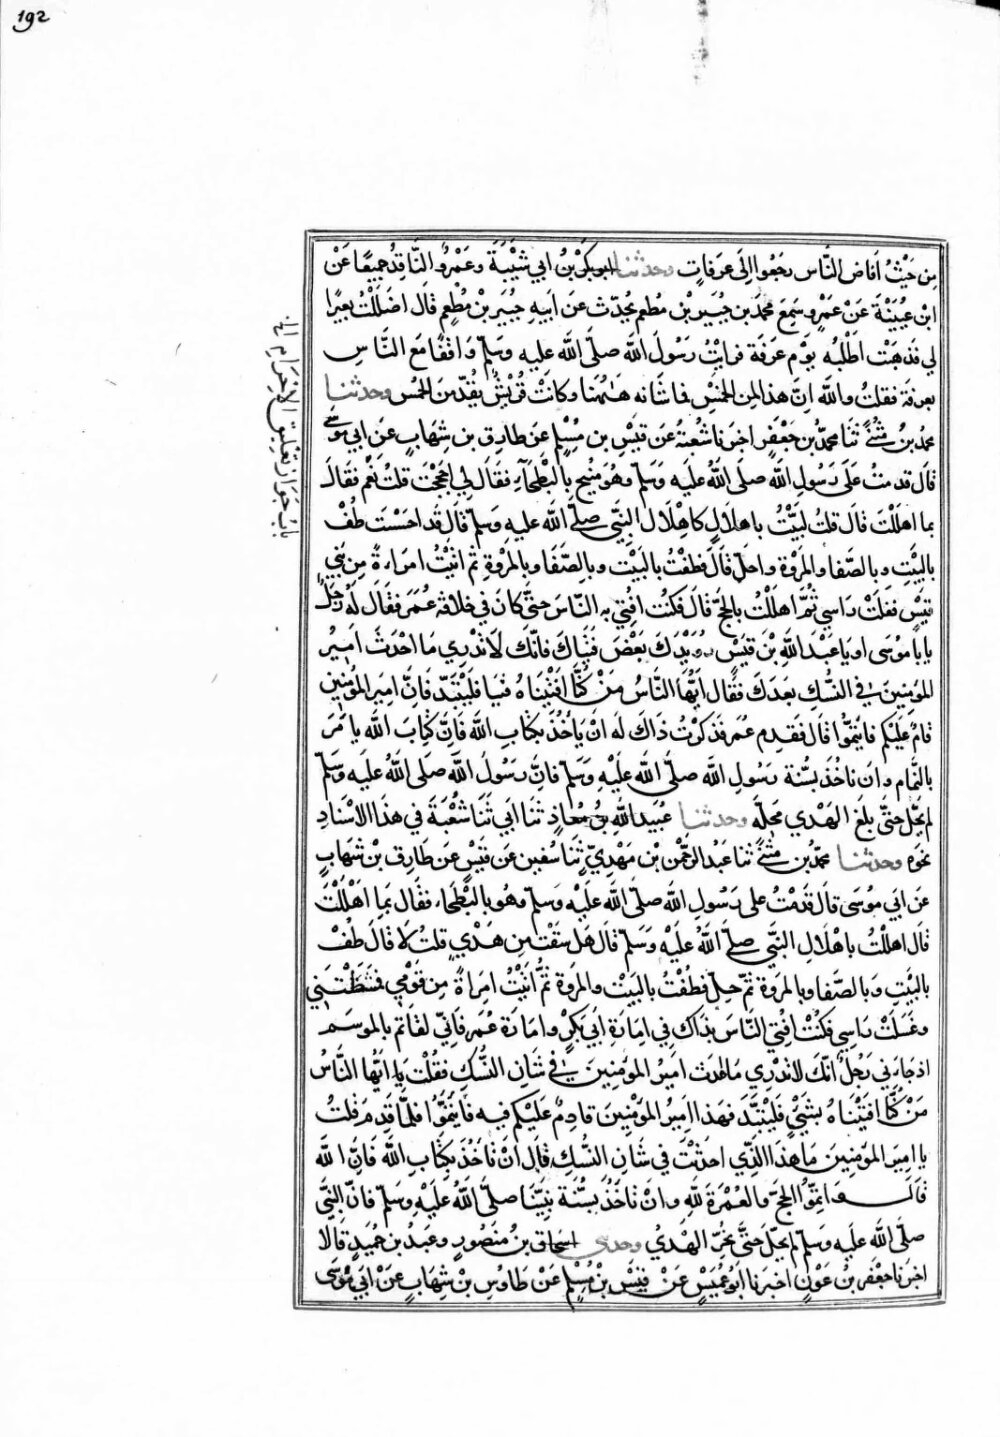 192
مِن حَيْثُ أفاض النَّاس رجَعُوا إلَى عرَفاتٍ وحدثنا ابو بَكْر بْنُ ابي شَيْبَةَ وعَمْرٌو النَّاقِدُ جميعًا عَنْ
ابْن عُيَيْنَةَ عَنْ عَمْرٍو سَمِعَ محمدَ بن جُبَيْر بْن مطعم يحَدّث عَن ابَيهِ جبَير بْن مطْعِمٍ قَال اضلَلْتُ بعيرًا
لي فذهَبْت اطْلُبُه يَوْم عرَفَة فرايْتُ رَسُولَ الله صلّى الله عليه وسَلّم وَاقفًا مَع النَّاسِ
بعرفَة فقلتُ والله انَّ هذا لمن الحُمْسِ فما شَانه هَاهُنا وكانَتْ قُرَيْشٌ يُعَدّ من الحُمْس وحدثنا
محمدُ بنُ مثَنًّى ثَنا محمّد بن جَعْفَرٍ اخبَرنا شعْبَةُ عَن قيَسِ بن مُسْلِمٍ عَن طارِق بن شِهَابٍ عَن ابي مُوسَى
قالَ قدمتُ علَى رَسُولِ الله صلى اللهُ عليَه وسَلم وهُو مُنيخ بالبَطْحَاءِ فقَال لي احججْتَ قلتُ نعَمْ فقَالَ
بما اهلَلْتَ قالَ قلتُ لبّيْتُ باهلالٍ كَاهْلاَل النبّيِ صلّى الله عليه وسَلم قالَ قَد احْسَنْت طُفْ
بالبَيْتِ وبالصَّفا والمَرْوة واحلّ قَالَ فطفْتُ بالبَيْت وبالصَّفَا وبالمرْوةِ ثم اتَيْتُ امراءَةً مِن بَنِي
قيَسٍ ففلَتْ رَاسِي ثُمَّ اهللتُ بالحَجّ قَالَ فكنْت افْتي بِه النَّاسَ حتىّ كانَ في خلافَة عُمَرَ فقَال لَهُ رَجُلٌ
يا با مُوسَى او يا عَبْدَ الله بْن قَيسٍ رُوَيْدكَ بَعْضَ فتيَاك فانّكَ لاَ تدْرِي مَا احْدَثَ امَيرُ
المؤمِنِينَ في النسُّكِ بعدَكَ فقَال ايّهَا النَّاسُ مَنْ كنّا افتَيْنَاهُ فتيَا فليتّئِدْ فانّ امِيرَ المؤمنينَ
قادمٌ علَيْكم فايتَمّوا قَال فقَدِم عُمَر فذكرْتُ ذاك لَه فقال انْ نَأخُذْ بكتَابِ الله فَانَّ كِتَابَ الله يامُرَ
بالتَّمَام وان ناخُذ بسُّنة رَسُولِ الله صلّى الله عَلَيْهِ وسَلّم فانَّ رسُولَ الله صلى اللهُ عليه وسَلّم
لم يحَلّ حتىّ بلَغ الهَدْي مَحِلّه وحدثنا عُبَيد الله بنُ مُعَاذٍ ثَنَا ابي ثَنَا شُعْبَةُ في هذَا الاسْنَادِ
نحوَه وحدثنا محمّد بن مثَنًّى ثنا عَبد الرحْمن بن مَهْدِيّ ثَنا سُفين عَن قَيْسٍ عَن طارِق بْن شهَابٍ
عَن ابي مُوسَى قَالَ قدَمْتُ على رَسُولِ الله صلى الله عليْه وَسَلّم وهُو بالبَطْحَاء فقَال بمَا اهْلَلْتَ
قالَ اهلَلْتُ باهْلالِ النَبّي صلى الله علَيْهِ وسَلّم قالَ هَل سقْتَ مِن هَدْيٍ قلتُ لا قَالَ طُفْ
بالبَيْتِ وَبالصَّفا وبالمَروة ثمّ حِلّ فطفْتُ بالبَيْت والمرْوة ثمُّ اتَيْتُ امراةً مِن قَوْمي فمشَطَتْنِي
وغسَلَتْ رَاسِي فكُنْتُ افْتي النَّاسَ بذَاك في امَارَة ابي بَكْرٍ وامارَة عُمَر فَانّي لقائم بالموسَم
اذ جَاءَني رَجُلٌ انّك لاتدْرِي ما احدث امَيرُ المؤمِنينَ في شَانِ النُّسُك فقُلْتُ يا ايّهَا النّاسُ
مَنْ كُنَّا افتَيْناهُ بشَيْءٍ فليتّئِدْ فهَذا امِيرُ المؤمنِينَ قادِمٌ علَيْكم فيه فَايتَمّوا فلمَّا قَدِمَ قلتُ
يا امِيرَ المؤمِنِينَ مَا هذَا الذّي احدَثْتَ في شَان النُسكِ قالَ انْ نَاخُذ بكتَابِ الله فَانَّ الله
قَالَ وَ اتِمّوُا الحَجّ والعُمْرَةَ لله وانْ ناخُذ بسُّنَة نبِيّنَا صَلّى الله عَلَيْهِ وسَلّم فانّ النّبيَّ
صَلّى الله علَيهِ وسَلّم لم يَحلّ حَتَّى نحَرَ الهَدْيُ وحدثني اسْحَاق بن مَنصُورٍ وعَبدُ بن حُميدٍ قَالا
اخبَرنا جَعْفَر بنُ عَوْنٍ اخبرنا ابُو عُمَيْسٍ عَنْ قَيْسِ بْن مُسْلِمٍ عَنْ طاوُس بْن شِهَابٍ عَنْ ابي مُوسَى
بابُ جَوَازِ تَعْلِيقِ الاِحْرَامِ الخ